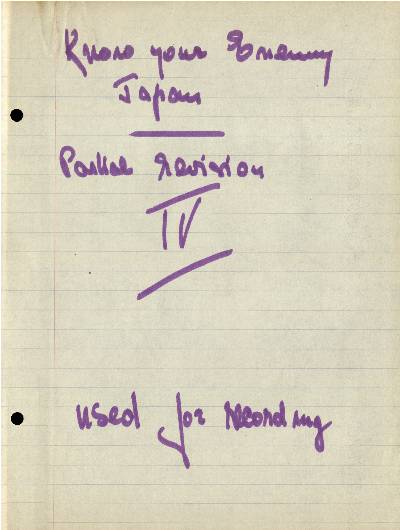 Know your Enemy
Japan
Partial Revision
IV
used for recording